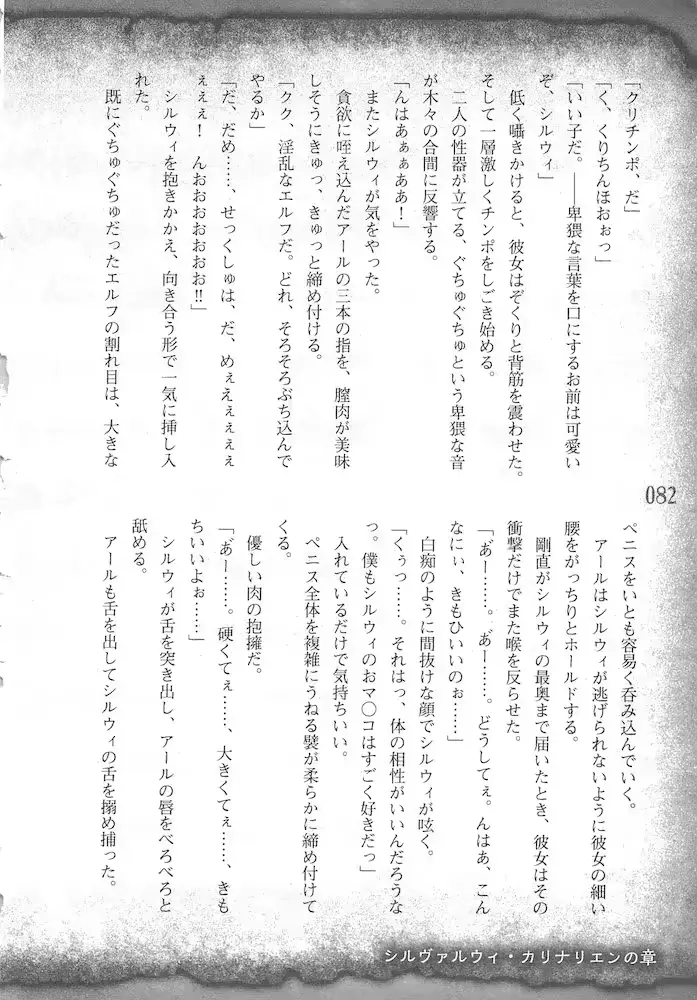 「クリチンポ、だ」
「く、くりちんほおぉっ」
「いい子だ。――卑猥な言葉を口にするお前は可愛い
ぞ、シルウィ」
低く囁きかけると、彼女はぞくりと背筋を震わせた。
そして一層激しくチンポをしごき始める。
二人の性器が立てる、ぐちゅぐちゅという卑猥な音
が木々の合間に反響する。
「んはあぁぁああ！」
またシルウィが気をやった。
貪欲に咥え込んだアールの三本の指を、膣肉が美味
しそうにきゅっ、きゅっと締め付ける。
「クク、淫乱なエルフだ。どれ、そろそろぶち込んで
やるか」
「だ、だめ……、せっくしゅは、だ、めぇえぇぇぇぇ
ぇぇぇ！　んおおおおおおお‼」
シルウィを抱きかかえ、向き合う形で一気に挿し入
れた。
既にぐちゅぐちゅだったエルフの割れ目は、大きな
082
ペニスをいとも容易く呑み込んでいく。
アールはシルウィが逃げられないように彼女の細い
腰をがっちりとホールドする。
剛直がシルウィの最奥まで届いたとき、彼女はその
衝撃だけでまた喉を反らせた。
「あ゛ー……。あ゛ー……。どうしてぇ。んはあ、こん
なにぃ、きもひいいのぉ……」
白痴のように間抜けな顔でシルウィが呟く。
「くぅっ……。それはっ、体の相性がいいんだろうな
っ。僕もシルウィのおマ〇コはすごく好きだっ」
入れているだけで気持ちいい。
ペニス全体を複雑にうねる襞が柔らかに締め付けて
くる。
優しい肉の抱擁だ。
「あ゛ー……。硬くてぇ……、大きくてぇ……、きも
ちいいよぉ……」
シルウィが舌を突き出し、アールの唇をべろべろと
舐める。
アールも舌を出してシルウィの舌を搦め捕った。
シルヴァルウィ・カリナリエンの章